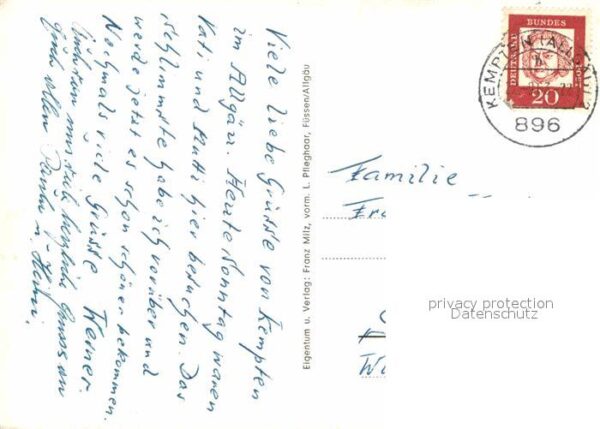 Viele liebe Grüsse von Kempten
im Allgäu. Heute Sonntag waren
Kati und Mutti hier besuchen. Das
schlimmste habe ich vorüber und
werde jetzt es schon schöner bekommen.
Nochmals viele Grüsse Werner
herzliche
Euch allen
Eigentum u. Verlag: Franz Milz, vorm. L. Pfleghaar, Füssen/Allgäu
DEUTSCHE
BUNDES
POST
20
KEMPTEN (ALLGÄU)
896
Familie
Fra
privacy protection
Datenschutz